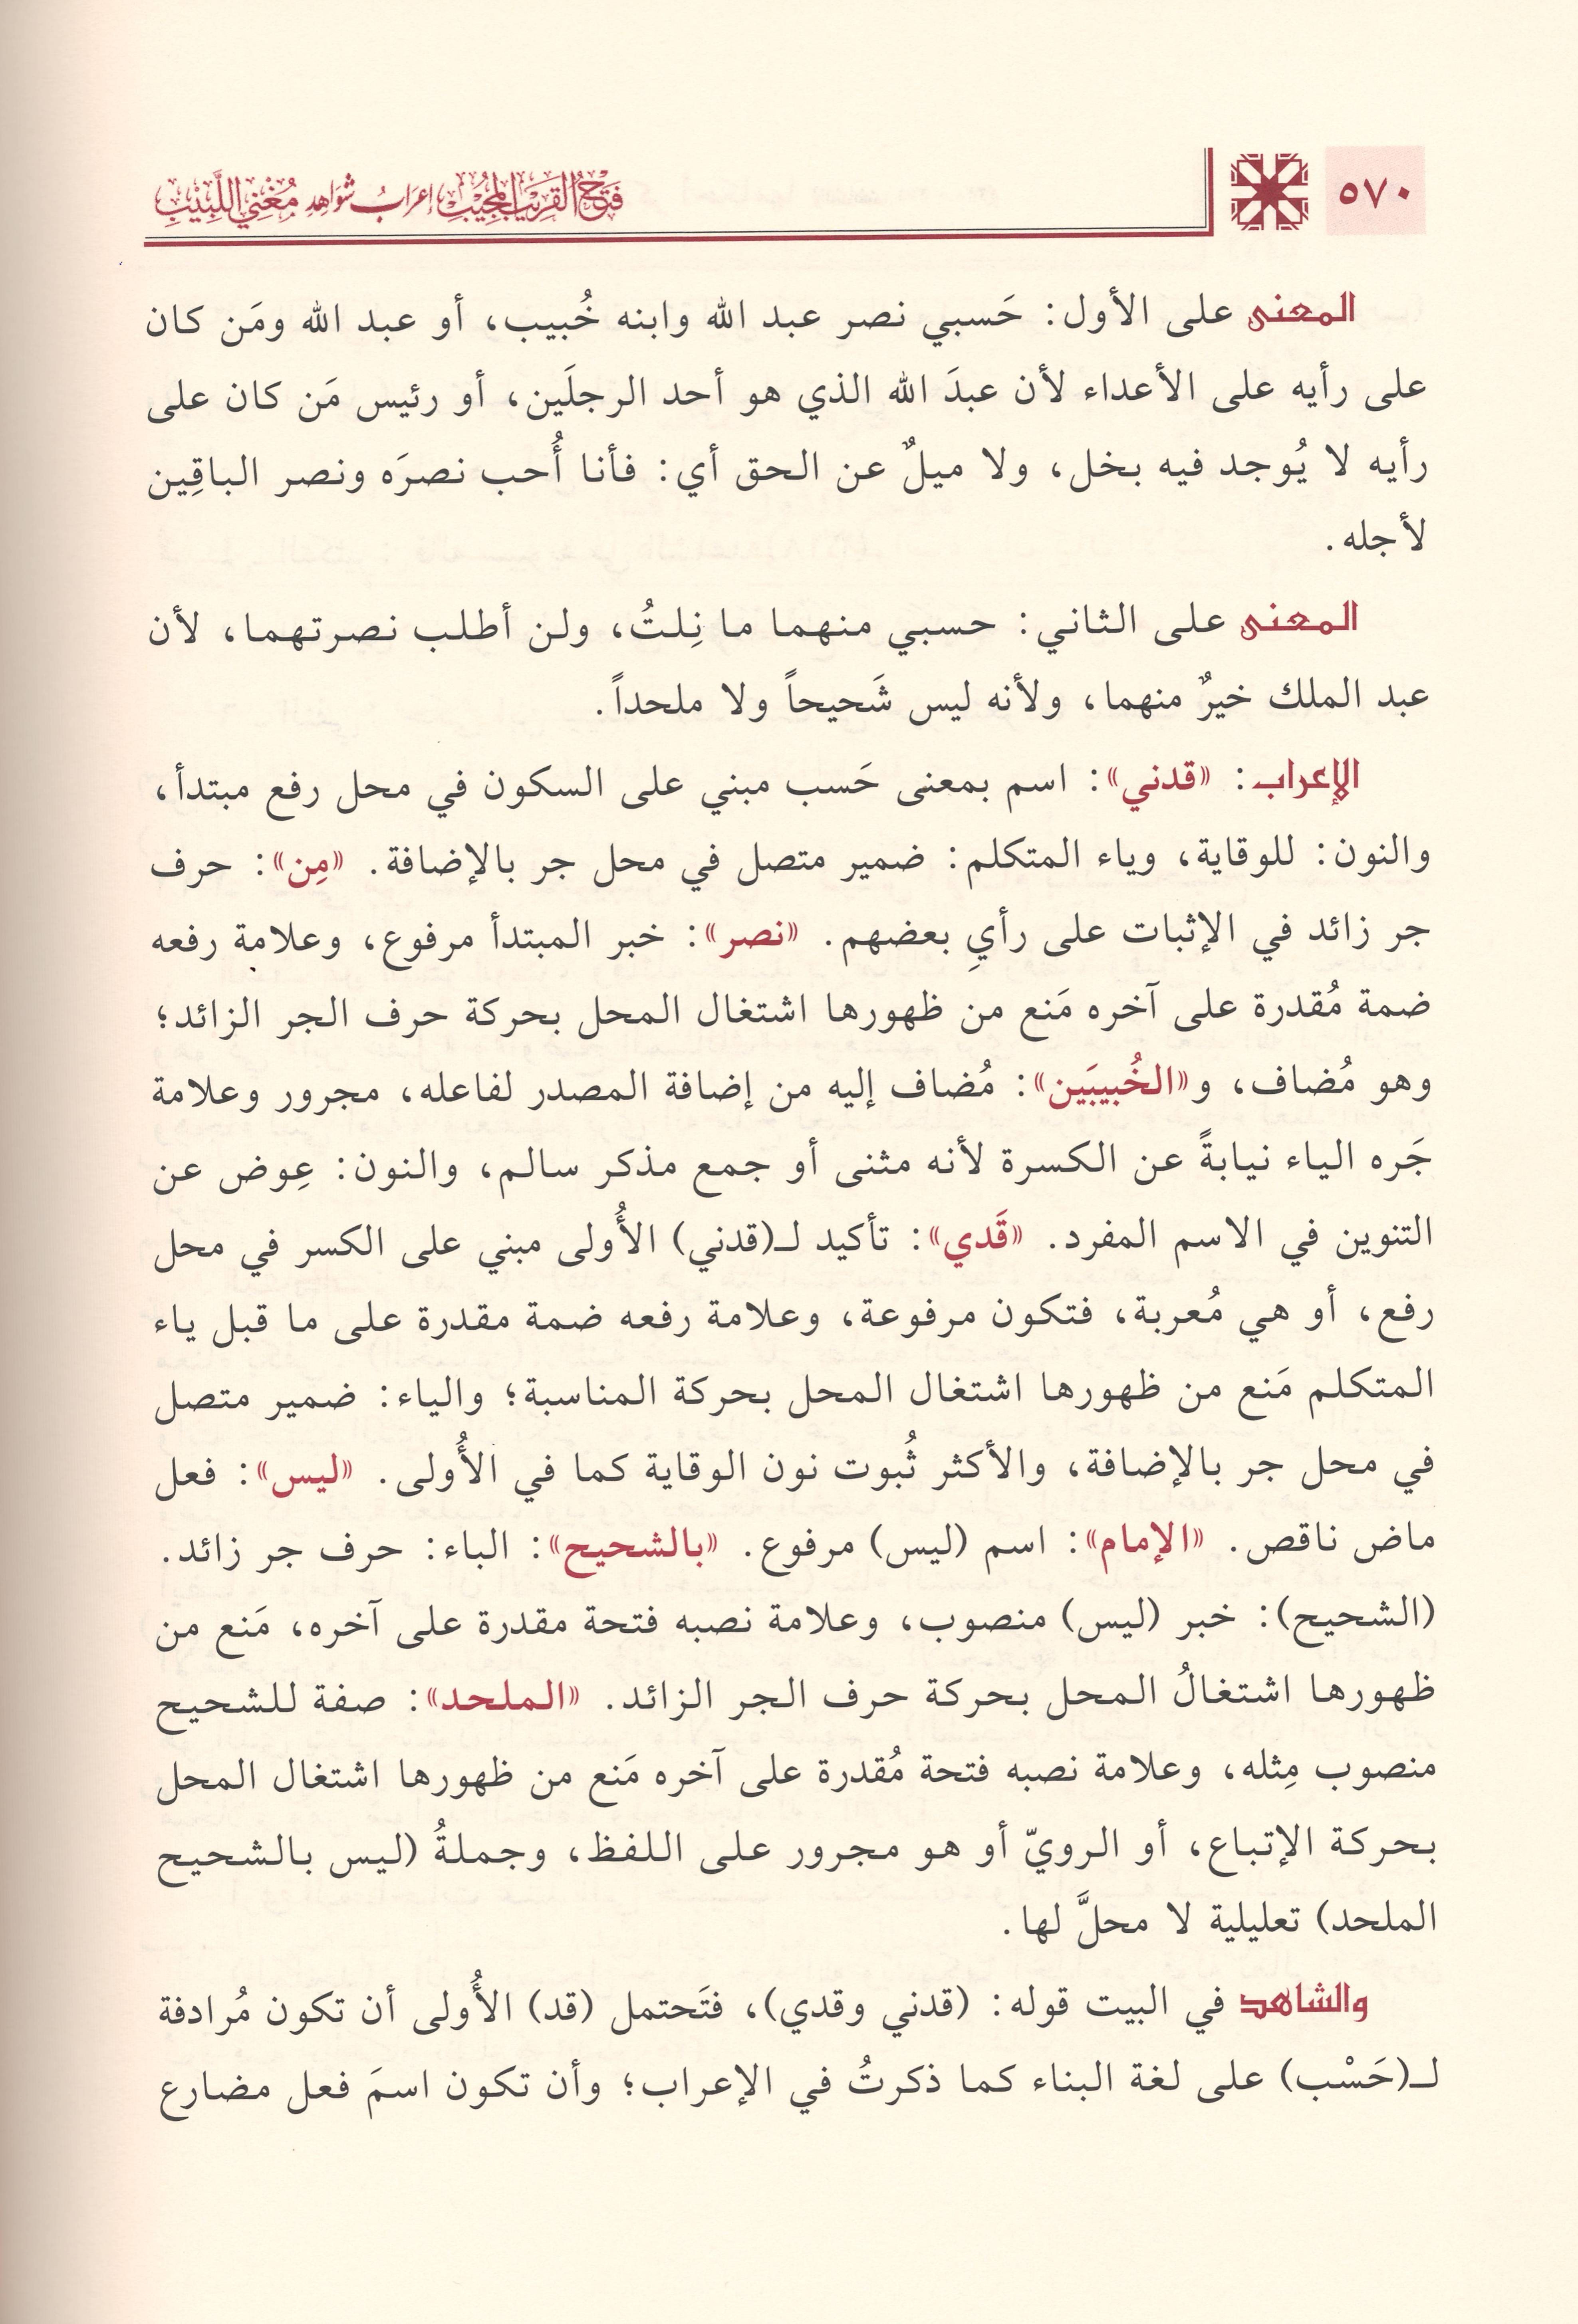 ٥٧٠
فتح القريب المجيب إعراب شواهد مغني اللبيب
المعنى على الأول: حَسبي نصر عبد الله وابنه خُبيب، أو عبد الله ومَن كان
على رأيه على الأعداء لأن عبدَ الله الذي هو أحد الرجلَين، أو رئيس مَن كان على
رأيه لا يُوجد فيه بخل، ولا ميلٌ عن الحق أي: فأنا أُحب نصرَه ونصر الباقِين
لأجله.
المعنى على الثاني: حسبي منهما ما نِلتُ، ولن أطلب نصرتهما، لأن
عبد الملك خيرٌ منهما، ولأنه ليس شَحيحاً ولا ملحداً.
الإعراب: «قدني»: اسم بمعنى حَسب مبني على السكون في محل رفع مبتدأ،
والنون: للوقاية، وياء المتكلم: ضمير متصل في محل جر بالإضافة. «مِن»: حرف
جر زائد في الإثبات على رأيِ بعضهم. «نصر»: خبر المبتدأ مرفوع، وعلامة رفعه
ضمة مُقدرة على آخره مَنع من ظهورها اشتغال المحل بحركة حرف الجر الزائد؛
وهو مُضاف، و«الخُبيبَين»: مُضاف إليه من إضافة المصدر لفاعله، مجرور وعلامة
جَره الياء نيابةً عن الكسرة لأنه مثنى أو جمع مذكر سالم، والنون: عِوض عن
التنوين في الاسم المفرد. «قَدي»: تأكيد لـ(قدني) الأُولى مبني على الكسر في محل
رفع، أو هي مُعربة، فتكون مرفوعة، وعلامة رفعه ضمة مقدرة على ما قبل ياء
المتكلم مَنع من ظهورها اشتغال المحل بحركة المناسبة؛ والياء: ضمير متصل
في محل جر بالإضافة، والأكثر ثُبوت نون الوقاية كما في الأُولى. «ليس»: فعل
ماض ناقص. «الإمام»: اسم (ليس) مرفوع. «بالشحيح»: الباء: حرف جر زائد.
(الشحيح): خبر (ليس) منصوب، وعلامة نصبه فتحة مقدرة على آخره، مَنع من
ظهورها اشتغالُ المحل بحركة حرف الجر الزائد. «الملحد»: صفة للشحيح
منصوب مِثله، وعلامة نصبه فتحة مُقدرة على آخره مَنع من ظهورها اشتغال المحل
بحركة الإتباع، أو الرويّ أو هو مجرور على اللفظ، وجملةُ (ليس بالشحيح
الملحد) تعليلية لا محلَّ لها.
والشاهد في البيت قوله: (قدني وقدي)، فتَحتمل (قد) الأُولى أن تكون مُرادفة
لـ(حَسْب) على لغة البناء كما ذكرتُ في الإعراب؛ وأن تكون اسمَ فعل مضارع